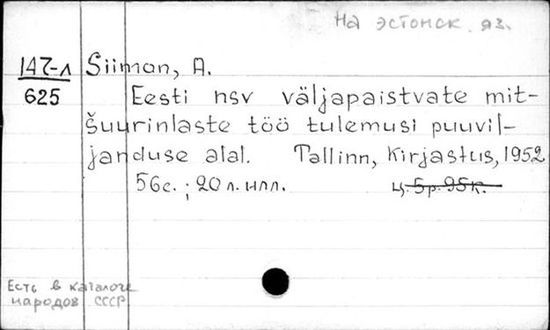 На эстонск. яз.
147-л Siiman, A.
625 Eesti nsv väljapaistvate mit-
šuurinlaste töö tulemusi puuvil-
janduse alal. Tallinn, Kirjastus, 1952
56с.; 20 л. илл. ц. 5р. 95к.
Есть в каталоге
народов СССР